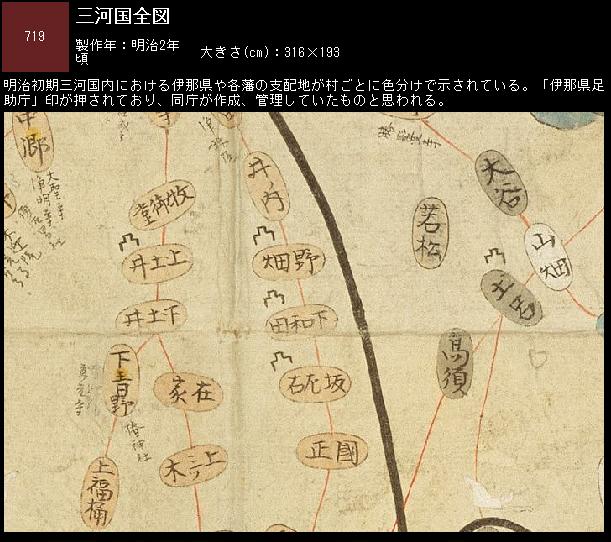 719
三河国全図
製作年：明治2年頃
大きさ(cm)：316×193
明治初期三河国内における伊那県や各藩の支配地が村ごとに色分けで示されている。「伊那県足
助庁」印が押されており、同庁が作成、管理していたものと思われる。
中郷
牧御堂
井上土
井土下
下青野
在家
上三ツ木
上福桶
井ノ内
野畑
下和田
坂左右
正國
若松
大谷
山畑
土呂
高須